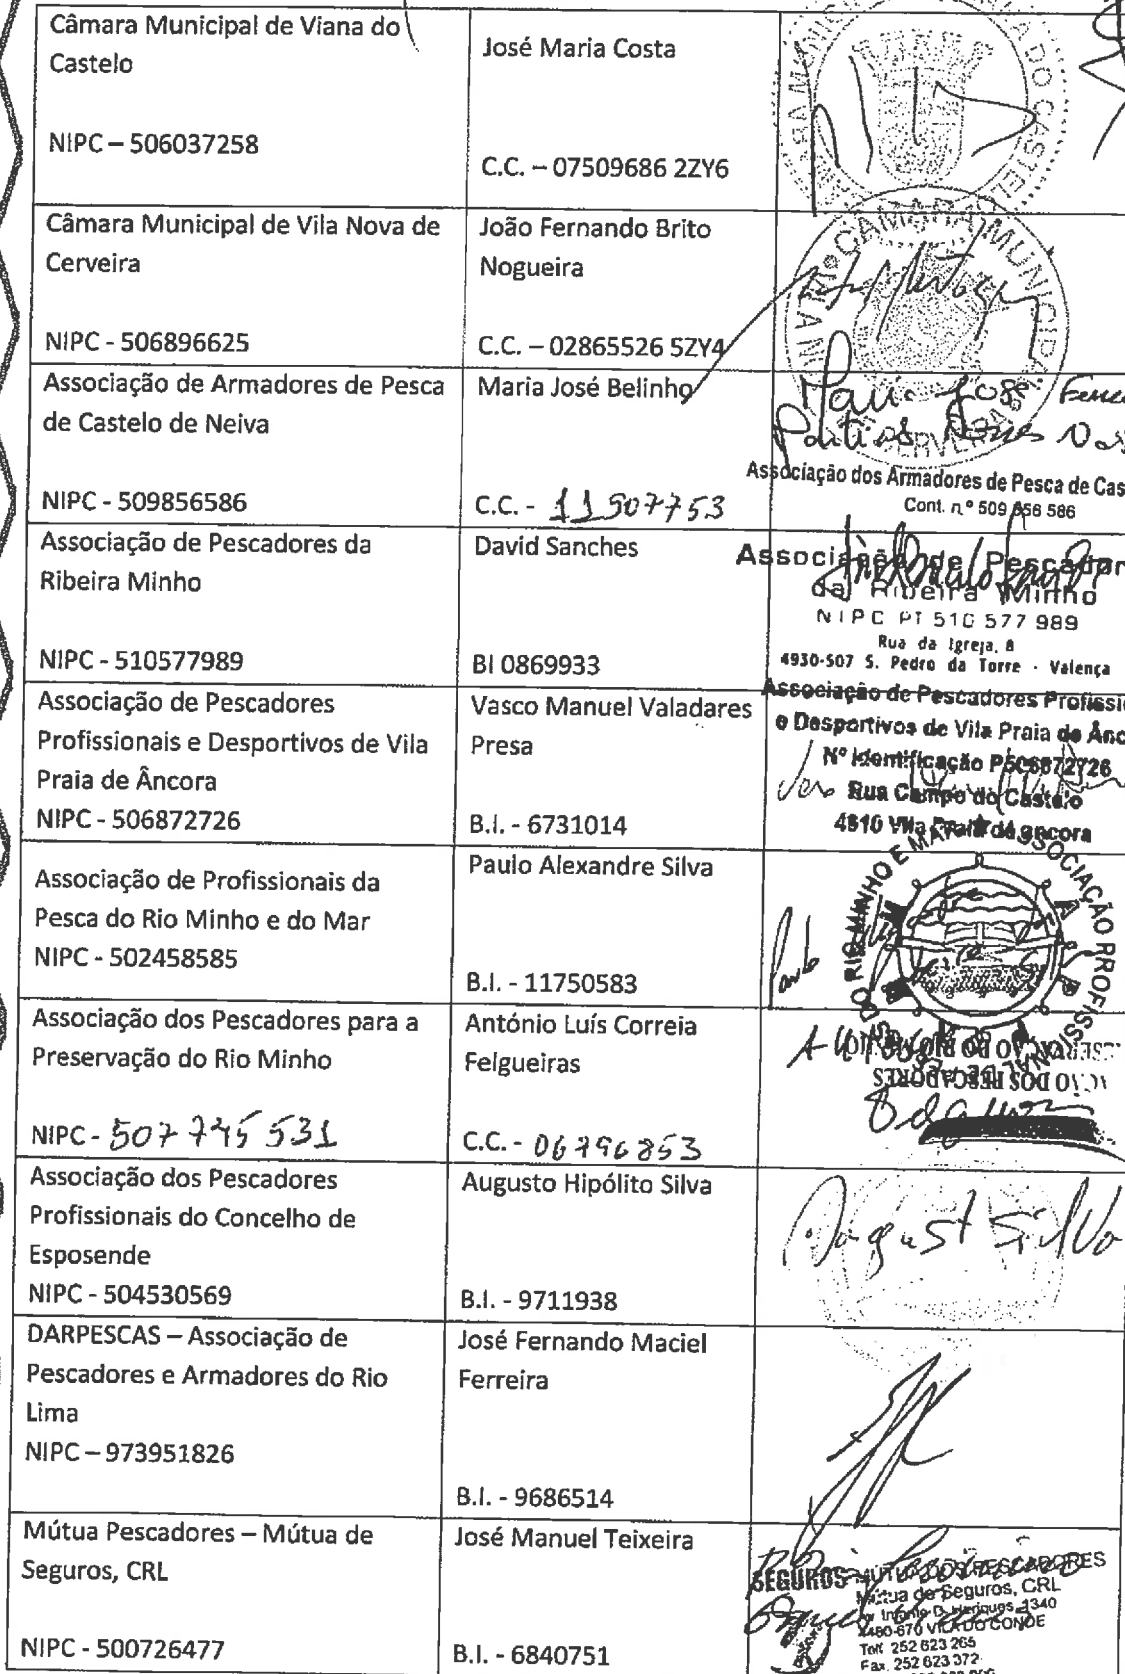 Câmara Municipal de Viana do
Castelo
NIPC – 506037258
José Maria Costa
C.C. – 07509686 2ZY6
Câmara Municipal de Vila Nova de
Cerveira
NIPC - 506896625
João Fernando Brito
Nogueira
C.C. – 02865526 5ZY4
CAMARA MUNICIP
Associação de Armadores de Pesca
de Castelo de Neiva
NIPC - 509856586
Maria José Belinho
C.C. - 11907753
Maria José
Associação dos Armadores de Pesca de Cas
Cont. n.º 509 856 586
Associação de Pescadores da
Ribeira Minho
NIPC - 510577989
David Sanches
BI 0869933
Associação de Pescador
da Ribeira Minho
NIPC PT 510 577 989
Rua da Igreja, 8
4930-507 S. Pedro da Torre - Valença
Associação de Pescadores
Profissionais e Desportivos de Vila
Praia de Âncora
NIPC - 506872726
Vasco Manuel Valadares
Presa
B.I. - 6731014
Associação de Pescadores Profissi
e Desportivos de Vila Praia de Ânc
Nº Identificação P506872726
Rua Campo do Castelo
4810 Vila Praia de ancora
Associação de Profissionais da
Pesca do Rio Minho e do Mar
NIPC - 502458585
Paulo Alexandre Silva
B.I. - 11750583
Paulo
DO RIO MINHO E MAR
ASSOCIAÇÃO PROFISSIONAL
Associação dos Pescadores para a
Preservação do Rio Minho
NIPC - 507 745 531
António Luís Correia
Felgueiras
C.C. - 06796853
AÇÃO DOS PESCADORES
Associação dos Pescadores
Profissionais do Concelho de
Esposende
NIPC - 504530569
Augusto Hipólito Silva
B.I. - 9711938
August Silva
DARPESCAS – Associação de
Pescadores e Armadores do Rio
Lima
NIPC – 973951826
José Fernando Maciel
Ferreira
B.I. - 9686514
Mútua Pescadores – Mútua de
Seguros, CRL
NIPC - 500726477
José Manuel Teixeira
B.I. - 6840751
SEGUROS MÚTUA DOS PESCADORES
Mútua de Seguros, CRL
Infante D. Henriques, 1340
4480-670 VILA DO CONDE
Telf. 252 623 265
Fax. 252 623 372